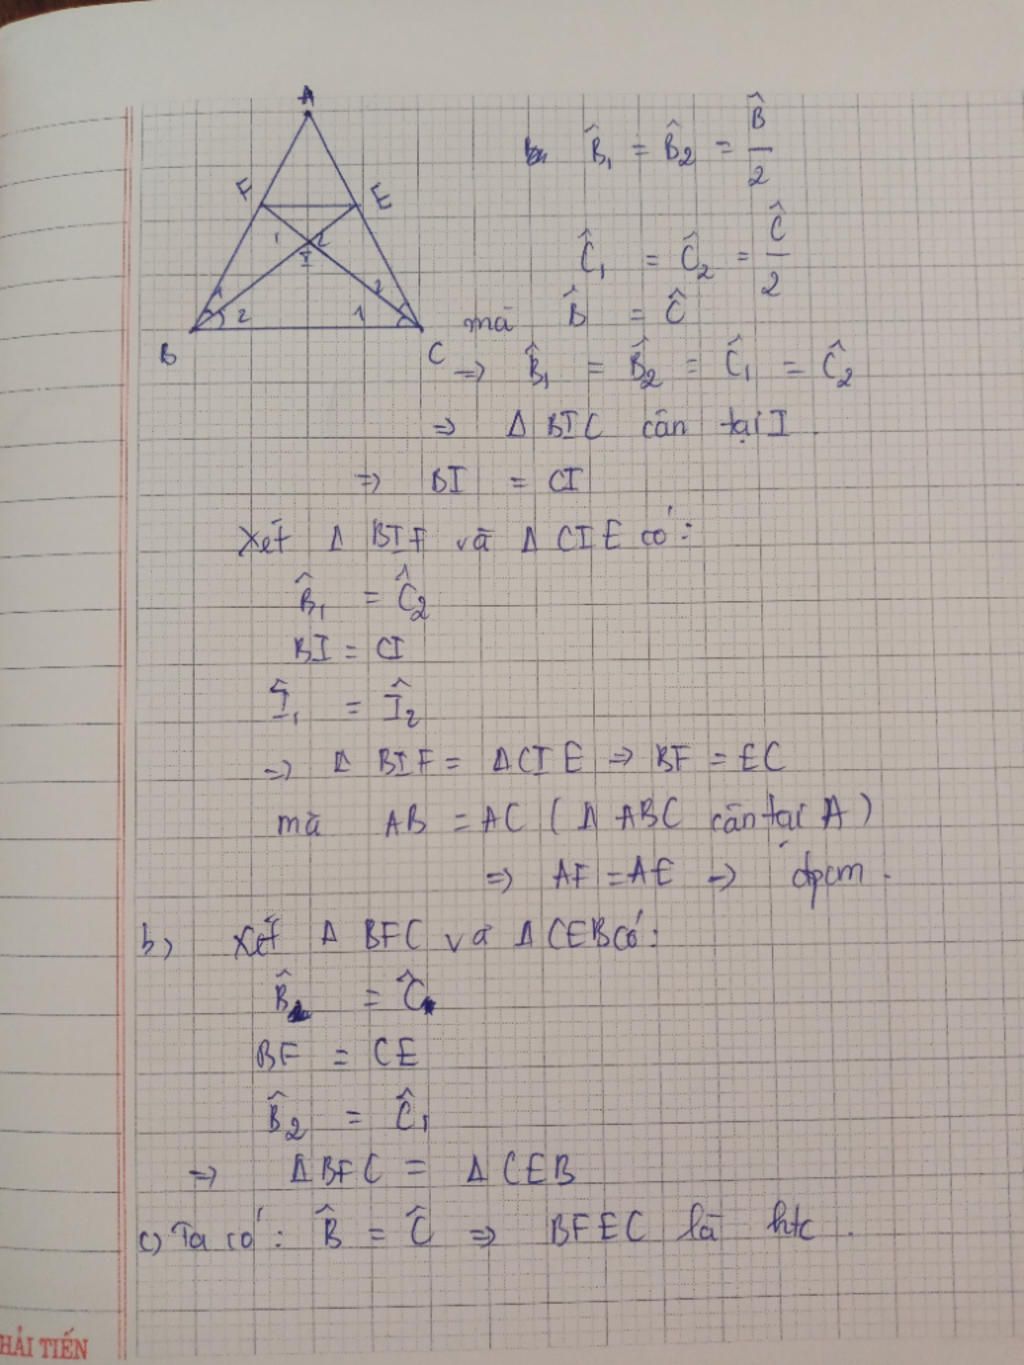 A
F
E
1
2
I
1
2
2
1
B
C
B̂₁ = B̂₂ = B̂/2
Ĉ₁ = Ĉ₂ = Ĉ/2
mà B̂ = Ĉ
⇒ B̂₁ = B̂₂ = Ĉ₁ = Ĉ₂
⇒ Δ BIC cân tại I
⇒ BI = CI
Xét Δ BIF và Δ CIE có:
B̂₁ = Ĉ₂
BI = CI
Î₁ = Î₂
⇒ Δ BIF = Δ CIE ⇒ BF = EC
mà AB = AC (Δ ABC cân tại A)
⇒ AF = AE → đpcm.
b) Xét Δ BFC và Δ CEB có:
B̂ = Ĉ
BF = CE
B̂₂ = Ĉ₁
⇒ Δ BFC = Δ CEB
c) Ta có: B̂ = Ĉ ⇒ BFEC là htc.
HẢI TIẾN